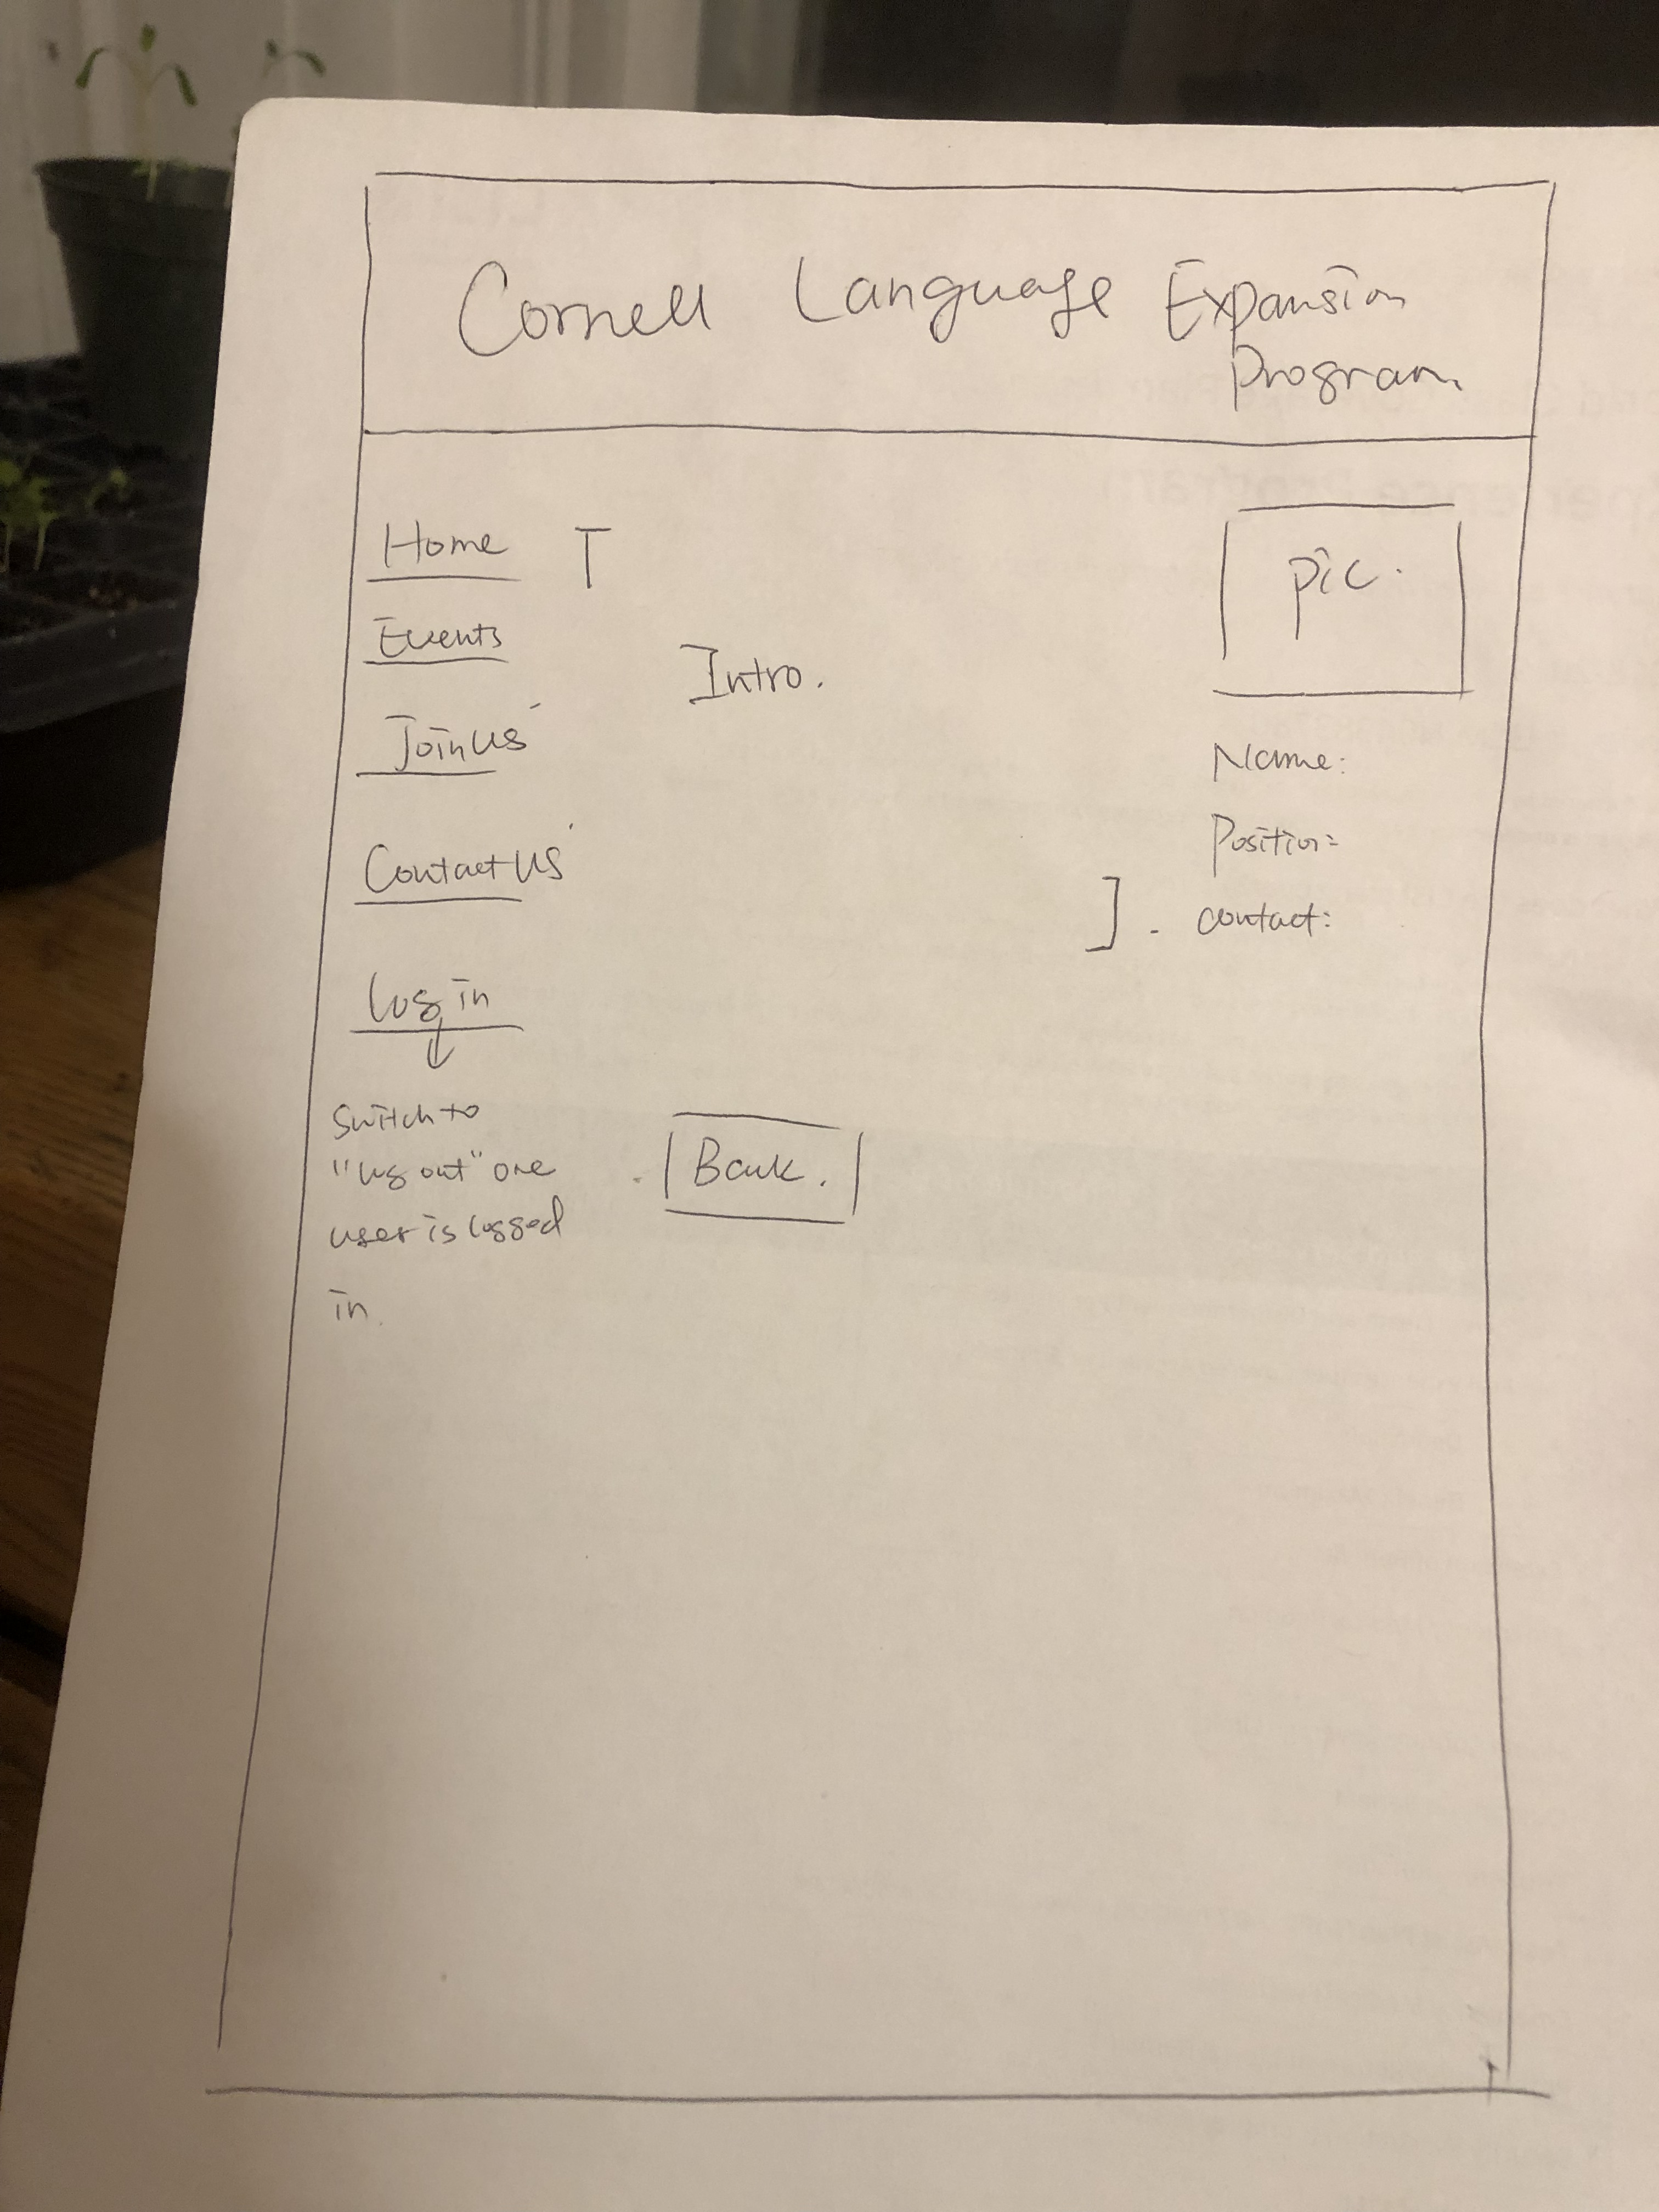 Cornell Language Expansion
Program
Home
Events
Join us
Contact us
Log in
Switch to
"log out" one
user is logged
in.
Intro.
pic.
Name:
Position:
contact:
Back.